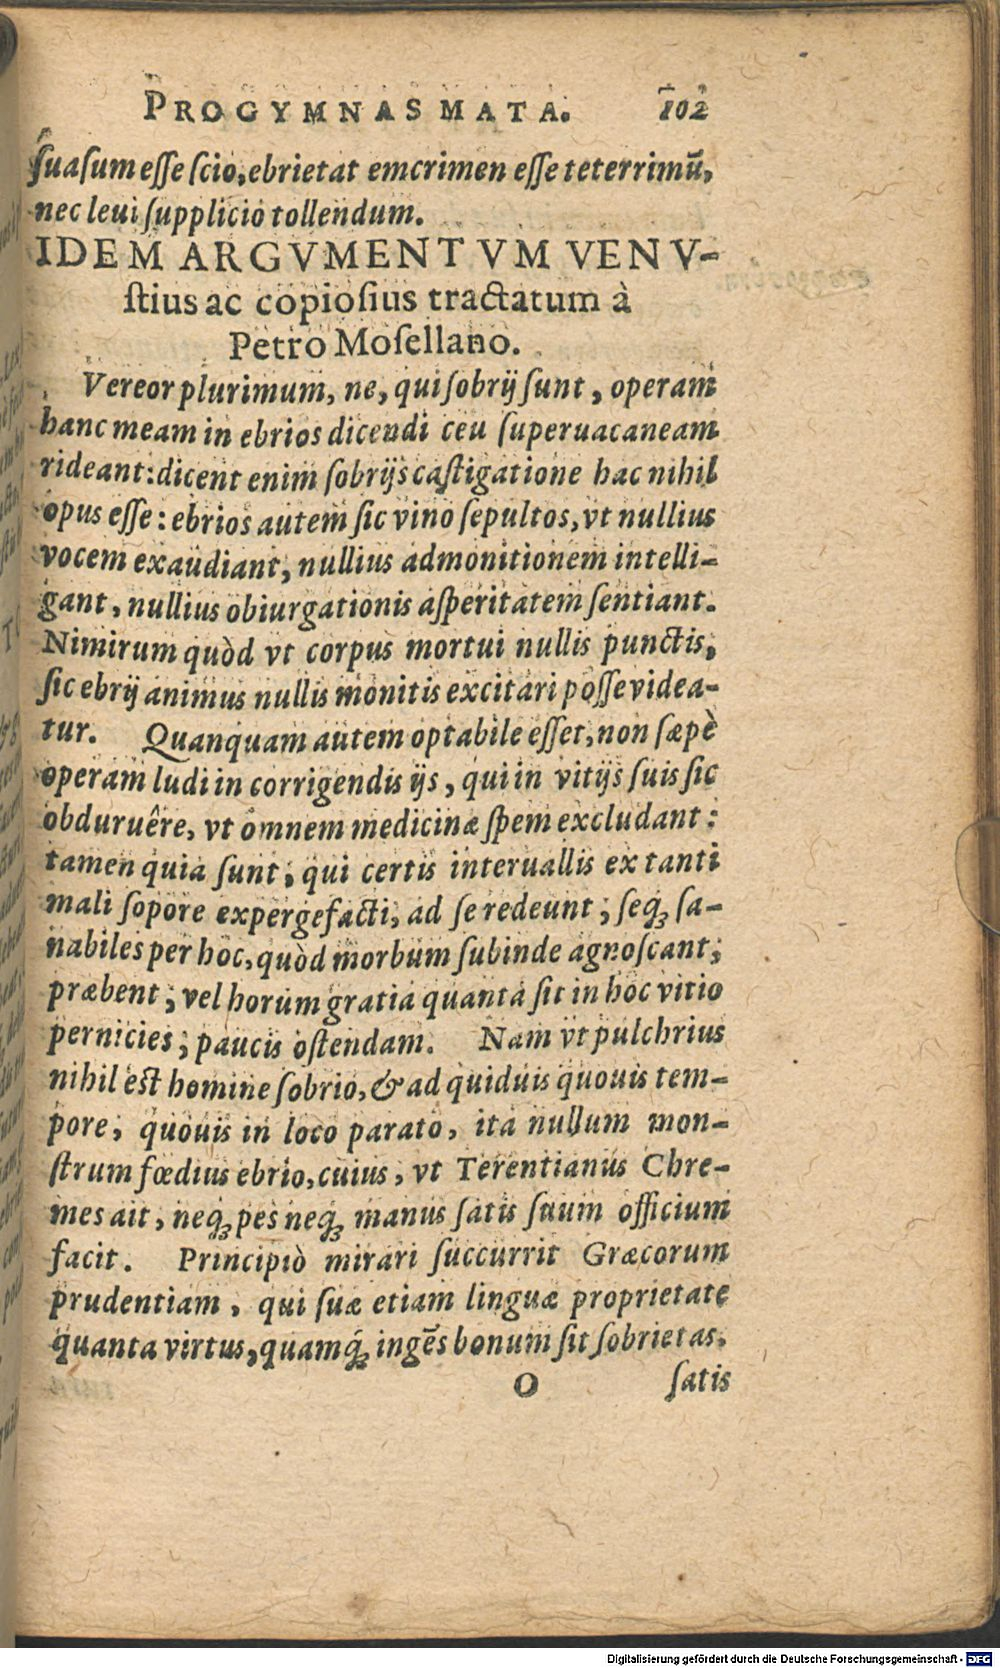 PROGYMNASMATA. 102
ſuaſum eſſe ſcio, ebrietat emcrimen eſſe teterrimū,
nec leui ſupplicio tollendum.
IDEM ARGVMENTVM VENV-
ſtius ac copioſius tractatum à
Petro Moſellano.
Vereor plurimum, ne, qui ſobrij ſunt, operam
hanc meam in ebrios dicendi ceu ſuperuacaneam
rideant: dicent enim ſobrijs caſtigatione hac nihil
opus eſſe: ebrios autem ſic vino ſepultos, vt nullius
vocem exaudiant, nullius admonitionem intelli-
gant, nullius obiurgationis aſperitatem ſentiant.
Nimirum quòd vt corpus mortui nullis punctis,
ſic ebrij animus nullis monitis excitari poſſe videa-
tur. Quanquam autem optabile eſſet, non ſæpè
operam ludi in corrigendis ijs, qui in vitijs ſuis ſic
obduruêre, vt omnem medicinæ ſpem excludant:
tamen quia ſunt, qui certis interuallis ex tanti
mali ſopore expergefacti, ad ſe redeunt, ſeq́ꝫ ſa-
nabiles per hoc, quòd morbum ſubinde agnoſcant,
præbent, vel horum gratia quanta ſit in hoc vitio
pernicies, paucis oſtendam. Nam vt pulchrius
nihil eſt homine ſobrio, & ad quiduis quouis tem-
pore, quouis in loco parato, ita nullum mon-
ſtrum fœdius ebrio, cuius, vt Terentianus Chre-
mes ait, neq́ꝫ pes neq́ꝫ manus ſatis ſuum officium
facit. Principiò mirari ſuccurrit Græcorum
prudentiam, qui ſuæ etiam linguæ proprietate
quanta virtus, quamq́ꝫ ingēs bonum ſit ſobrietas,
O ſatis
Digitalisierung gefördert durch die Deutsche Forschungsgemeinschaft - DFG